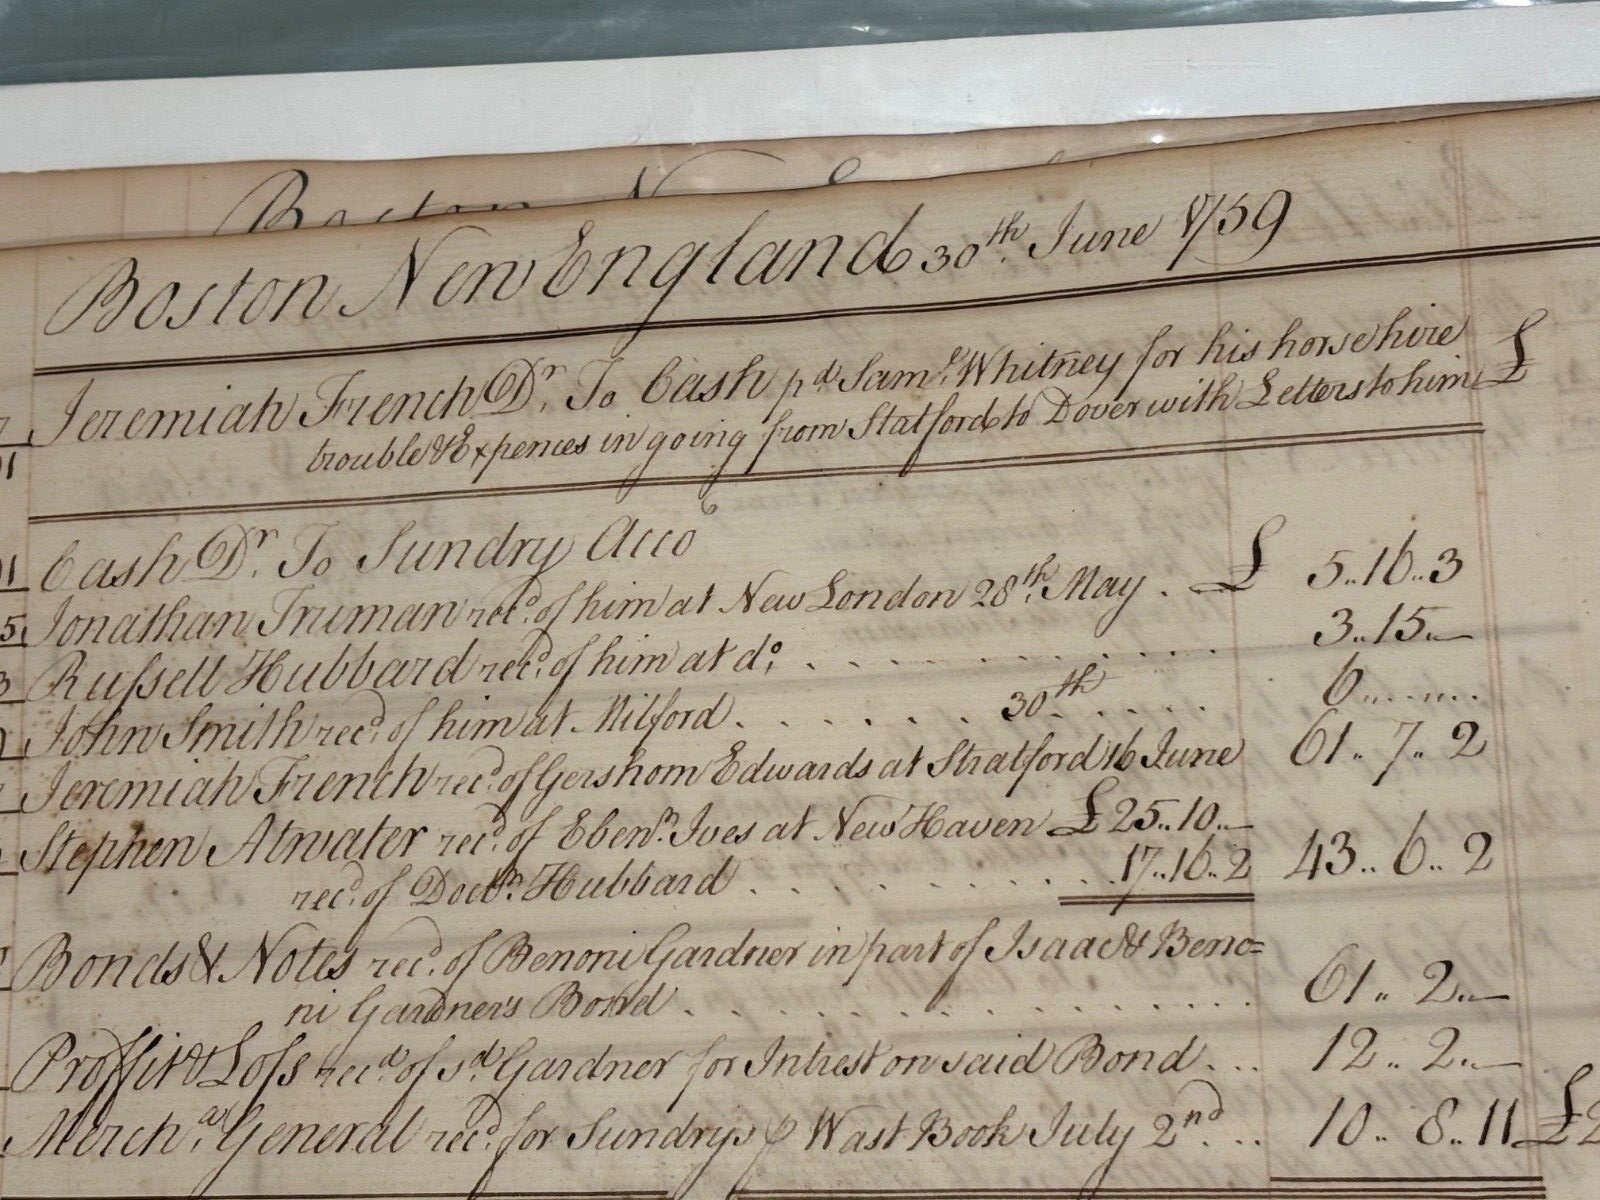 Boston N
Boston New England 30th. June 1759
Jeremiah French Dr. To Cash pd. Saml. Whitney for his horse hire £
trouble & Expences in going from Statford to Dover with Letters to him
Cash Dr. To Sundry Acco
Jonathan Truman recd. of him at New London 28th. May . £ 5..16..3
Russell Hubbard recd. of him at do. 3..15..—
John Smith recd. of him at Milford 30th 6
Jeremiah French recd. of Gershom Edwards at Stratford 16 June 61..7..2
Stephen Atwater recd. of Ebenr. Ives at New Haven £25..10..—
recd. of Doctr. Hubbard 17..16..2 43..6..2
Bonds & Notes recd. of Benoni Gardner in part of Isaac & Beno=
ni Gardner's Bond 61..2..—
Proffit & Loss recd. of sd. Gardner for Intrest on said Bond 12..2..—
Merchdz. General recd. for Sundrys ⅌ Wast Book July 2nd. 10..8..11 £2